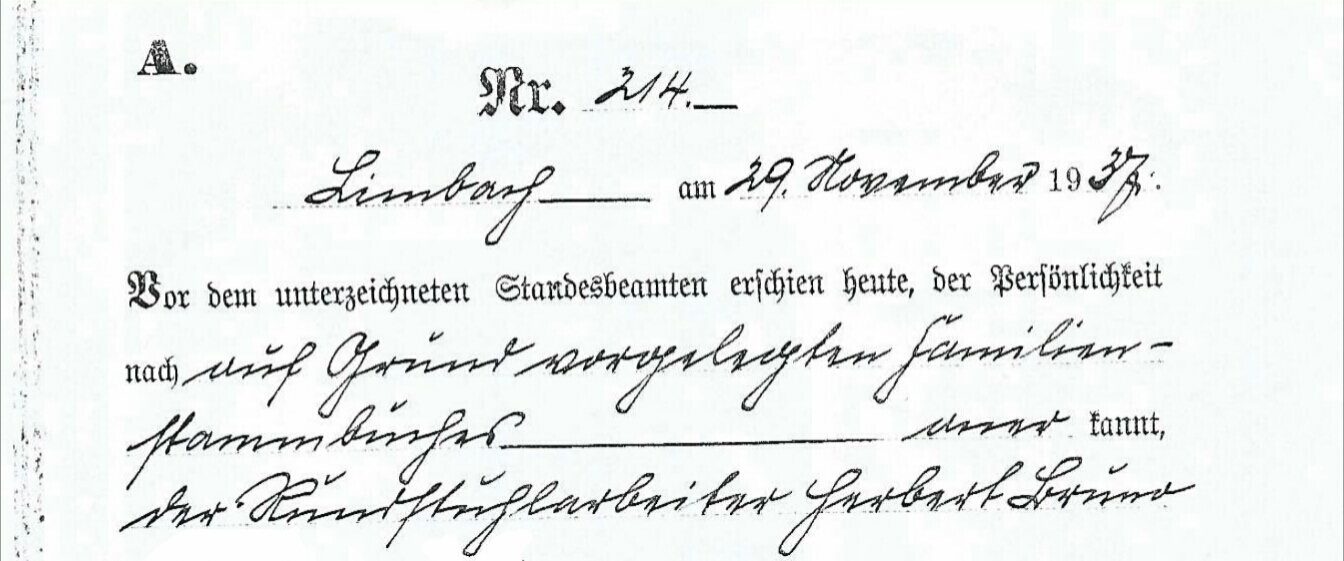 A.
Nr. 214.
Limbach am 29. November 1937.
Vor dem unterzeichneten Standesbeamten erschien heute, der Persönlichkeit
nach auf Grund vorgelegten Familien-
stammbuches aner kannt,
der Rundstuhlarbeiter Herbert Bruno